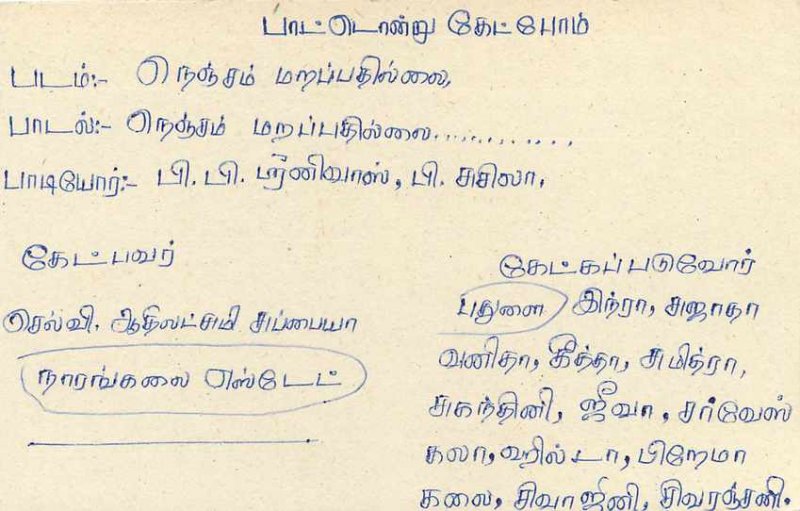 பாட்டொன்று கேட்போம்
படம்:- நெஞ்சம் மறப்பதில்லை.
பாடல்:- நெஞ்சம் மறப்பதில்லை............
பாடியோர்:- பி. பி. ஸ்ரீனிவாஸ், பி. சுசிலா.
கேட்பவர்
செல்வி. ஆதிலட்சுமி சுப்பையா
நாரங்கலை எஸ்டேட்
கேட்கப்படுவோர்
பதுளை இந்ரா, சுஜாதா
வனிதா, கீத்தா, சுமித்ரா,
சுகந்தினி, ஜீவா, சர்வேஸ்
கலா, ஹில்டா, பிறேமா
கலை, சிவாஜினி, சிவரஞ்சனி.